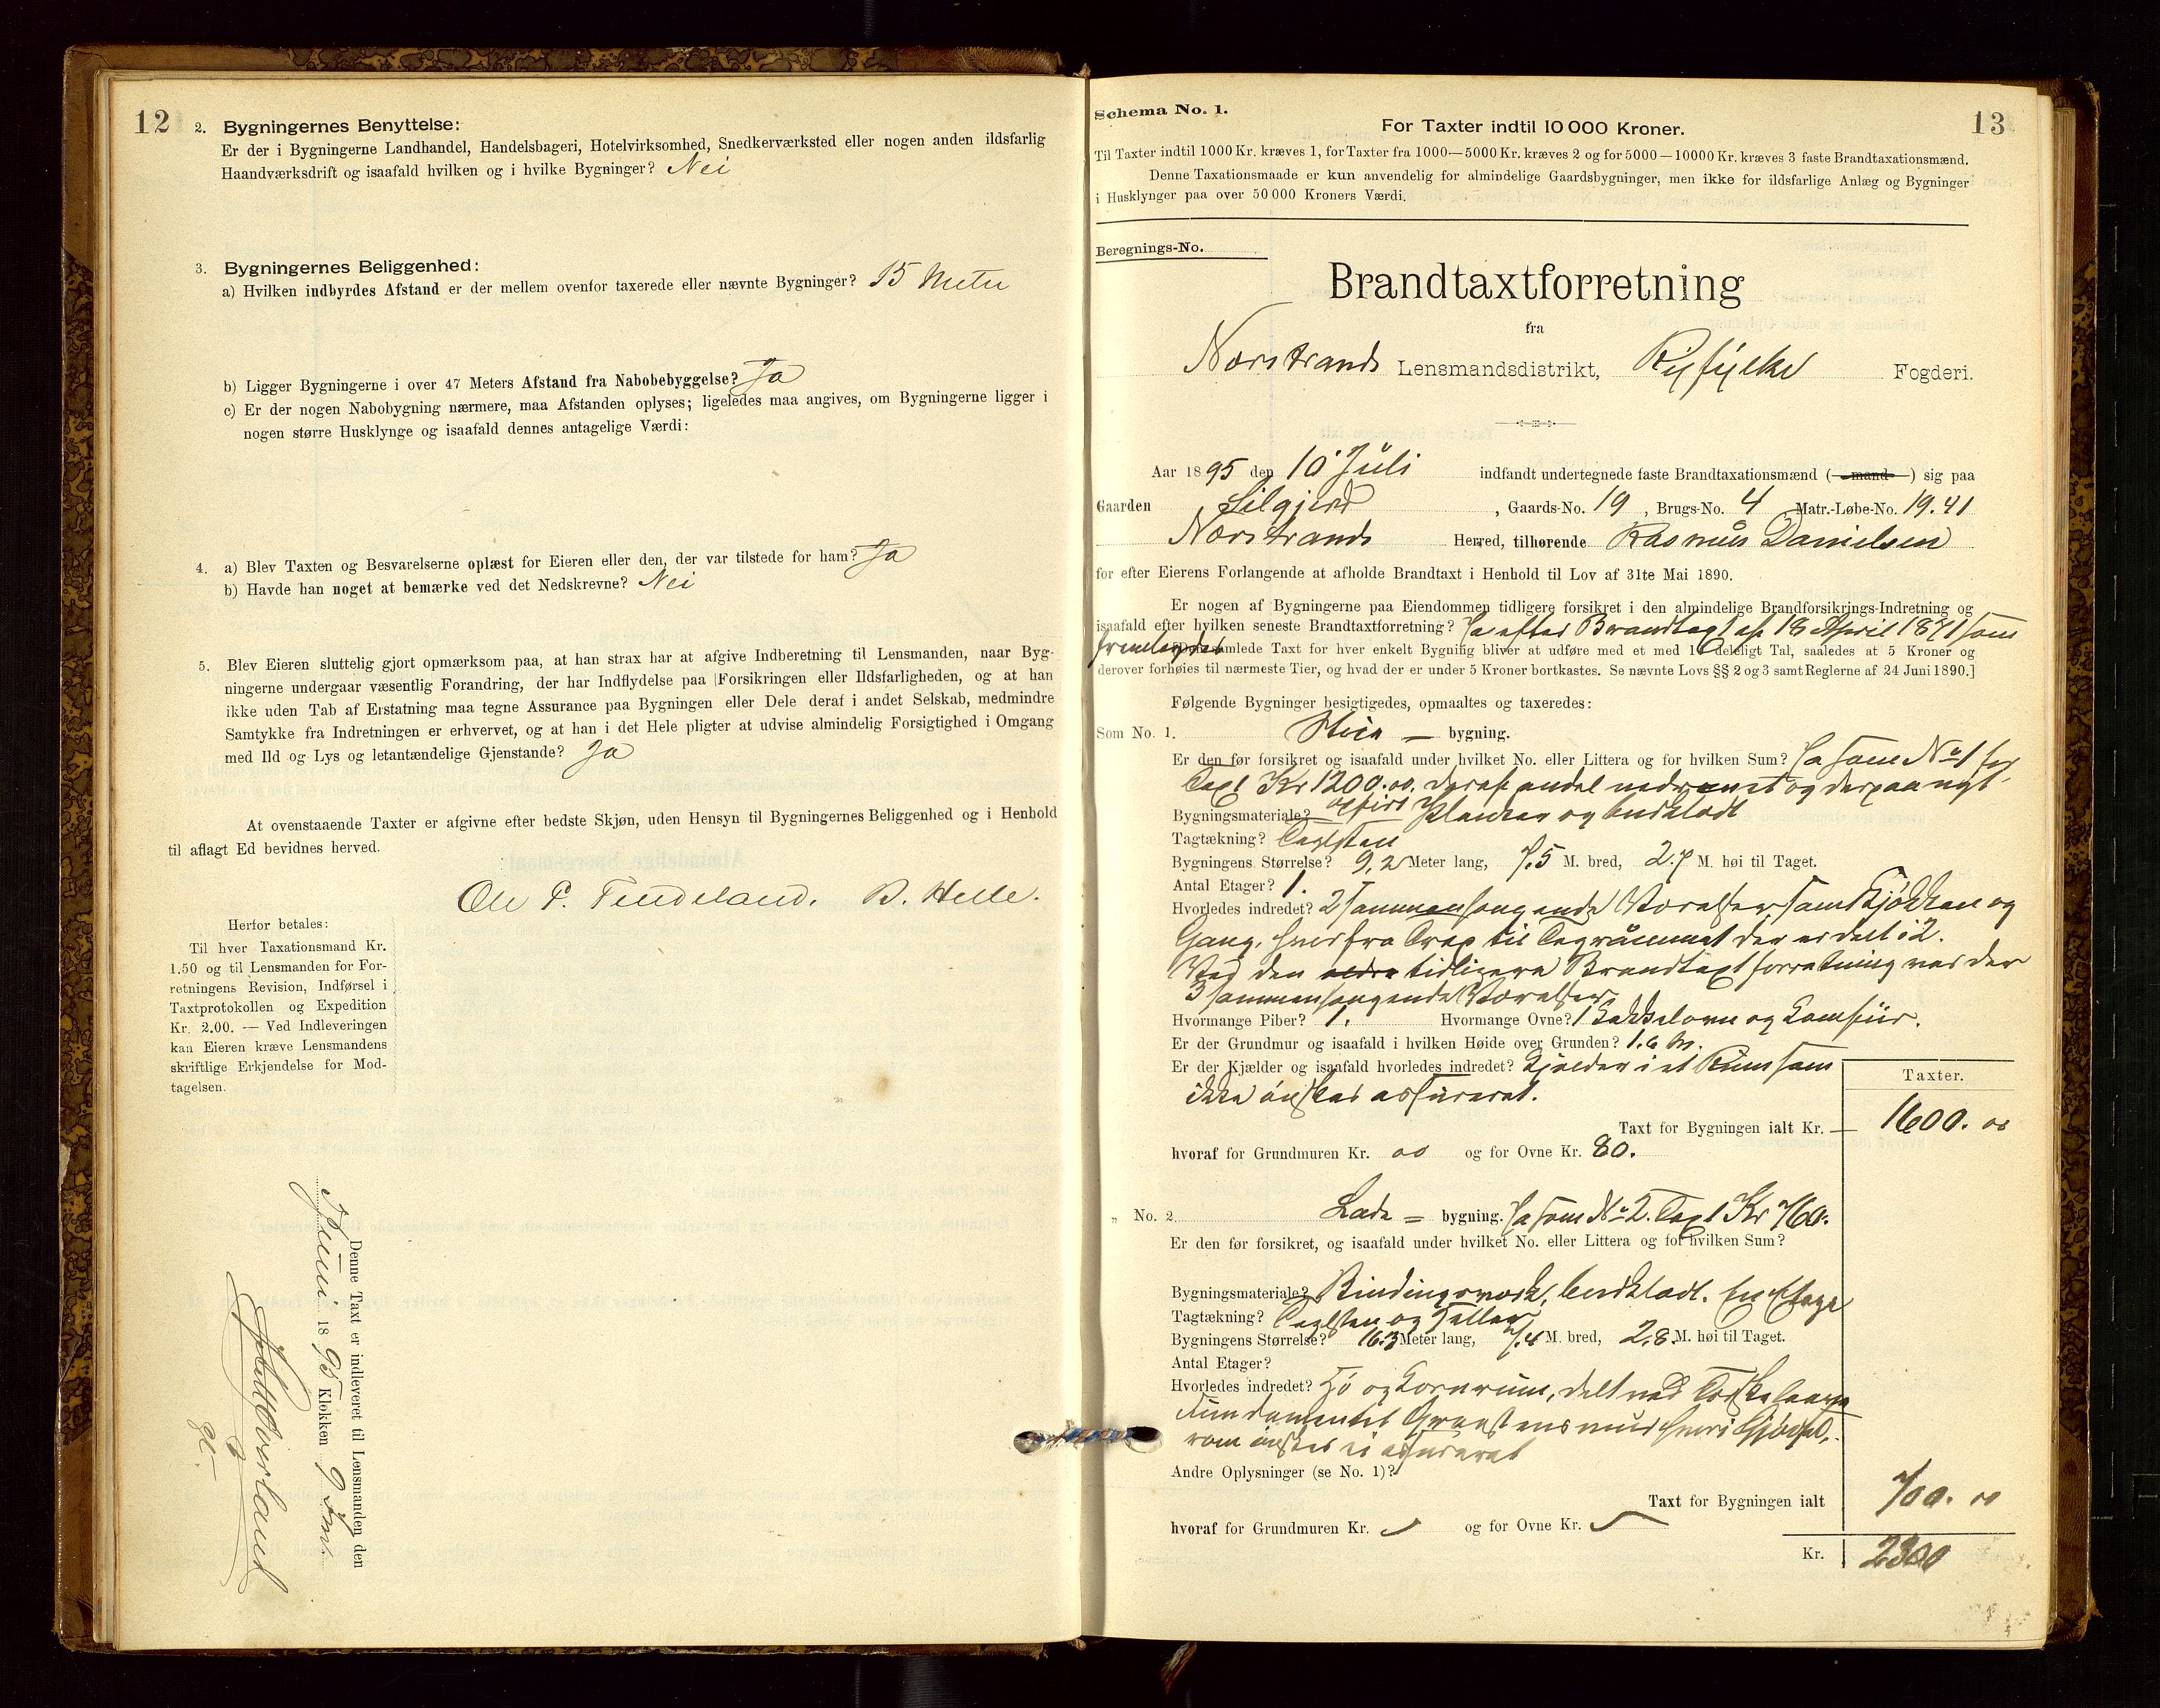 12
2. Bygningernes Benyttelse:
Er der i Bygningerne Landhandel, Handelsbageri, Hotelvirksomhed, Snedkerværksted eller nogen anden ildsfarlig
Haandværksdrift og isaafald hvilken og i hvilke Bygninger? Nei
3. Bygningernes Beliggenhed:
a) Hvilken indbyrdes Afstand er der mellem ovenfor taxerede eller nævnte Bygninger? 15 Meter
b) Ligger Bygningerne i over 47 Meters Afstand fra Nabobebyggelse? Ja
c) Er der nogen Nabobygning nærmere, maa Afstanden oplyses; ligeledes maa angives, om Bygningerne ligger i
nogen større Husklynge og isaafald dennes antagelige Værdi:
4. a) Blev Taxten og Besvarelserne oplæst for Eieren eller den, der var tilstede for ham? Ja
b) Havde han noget at bemærke ved det Nedskrevne? Nei
5. Blev Eieren sluttelig gjort opmærksom paa, at han strax har at afgive Indberetning til Lensmanden, naar Byg-
ningerne undergaar væsentlig Forandring, der har Indflydelse paa Forsikringen eller Ildsfarligheden, og at han
ikke uden Tab af Erstatning maa tegne Assurance paa Bygningen eller Dele deraf i andet Selskab, medmindre
Samtykke fra Indretningen er erhvervet, og at han i det Hele pligter at udvise almindelig Forsigtighed i Omgang
med Ild og Lys og letantændelige Gjenstande? Ja
At ovenstaaende Taxter er afgivne efter bedste Skjøn, uden Hensyn til Bygningernes Beliggenhed og i Henhold
til aflagt Ed bevidnes herved.
Ole P. Tendeland. B. Helle.
Herfor betales:
Til hver Taxationsmand Kr.
1.50 og til Lensmanden for For-
retningens Revision, Indførsel i
Taxtprotokollen og Expedition
Kr. 2.00. — Ved Indleveringen
kan Eieren kræve Lensmandens
skriftlige Erkjendelse for Mod-
tagelsen.
Denne Taxt er indleveret til Lensmanden den
1895 Klokken 9 Fmd.
13
Schema No. 1.
For Taxter indtil 10 000 Kroner.
Til Taxter indtil 1000 Kr. kræves 1, for Taxter fra 1000—5000 Kr. kræves 2 og for 5000—10000 Kr. kræves 3 faste Brandtaxationsmænd.
Denne Taxationsmaade er kun anvendelig for almindelige Gaardsbygninger, men ikke for ildsfarlige Anlæg og Bygninger
i Husklynger paa over 50 000 Kroners Værdi.
Beregnings-No.
Brandtaxtforretning
fra
Nærstrands Lensmandsdistrikt, Ryfylke Fogderi.
Aar 1895 den 10 Juli indfandt undertegnede faste Brandtaxationsmænd (mand) sig paa
Gaarden Lilgjerd, Gaards-No. 19, Brugs-No. 4 Matr.-Løbe-No. 19.41
Nærstrands Herred, tilhørende Rasmus Danielsen
for efter Eierens Forlangende at afholde Brandtaxt i Henhold til Lov af 31te Mai 1890.
Er nogen af Bygningerne paa Eiendommen tidligere forsikret i den almindelige Brandforsikrings-Indretning og
isaafald efter hvilken seneste Brandtaxtforretning? Ja efter Brandtaxt af 18 April 1871 som
fremlagdes
[Den samlede Taxt for hver enkelt Bygning bliver at udføre med et med 10 deleligt Tal, saaledes at 5 Kroner og
derover forhøies til nærmeste Tier, og hvad der er under 5 Kroner bortkastes. Se nævnte Lovs §§ 2 og 3 samt Reglerne af 24 Juni 1890.]
Følgende Bygninger besigtigedes, opmaaltes og taxeredes:
Som No. 1. Stue — bygning.
Er den før forsikret og isaafald under hvilket No. eller Littera og for hvilken Sum? Ja som No 1 for
Taxt Kr 1200.00. deraf andel nedrevnet og derpaa nyt
opført
Bygningsmateriale? Planker og bordklædt
Tagtækning? Taglsten
Bygningens Størrelse? 9,2 Meter lang, 7.5 M. bred, 2.7 M. høi til Taget.
Antal Etager? 1.
Hvorledes indredet? 2 sammenhængende Værelser, samt Kjøkken og
Gang, hvorfra Trap til Tagrummet der er delt i 2.
Ved den ældre tidligere Brandtaxtforretning var der
3 sammenhængende Værelser
Hvormange Piber? 1. Hvormange Ovne? 1 Kakkelovn og Komfur.
Er der Grundmur og isaafald i hvilken Høide over Grunden? 1.6 M.
Er der Kjælder og isaafald hvorledes indredet? Kjælder i et Rum som
ikke ønskes assureret.
Taxter.
Taxt for Bygningen ialt Kr. 1600.00
hvoraf for Grundmuren Kr. 00 og for Ovne Kr. 80.
„ No. 2 Lade — bygning. Ja som No 2. Taxt Kr 760.
Er den før forsikret, og isaafald under hvilket No. eller Littera og for hvilken Sum?
Bygningsmateriale? Bindingsværk, bordklædt. En Etage
Tagtækning? Taglsten og Heller
Bygningens Størrelse? 16.3 Meter lang, 7.4 M. bred, 2.8 M. høi til Taget.
Antal Etager?
Hvorledes indredet? Hø og Kornrum, delt ved Tærskelaave
Fundamentet Graastensmur hvori Gjødsel-
rom ønskes ei assureret
Andre Oplysninger (se No. 1)?
Taxt for Bygningen ialt 700.00
hvoraf for Grundmuren Kr. og for Ovne Kr.
Kr. 2300